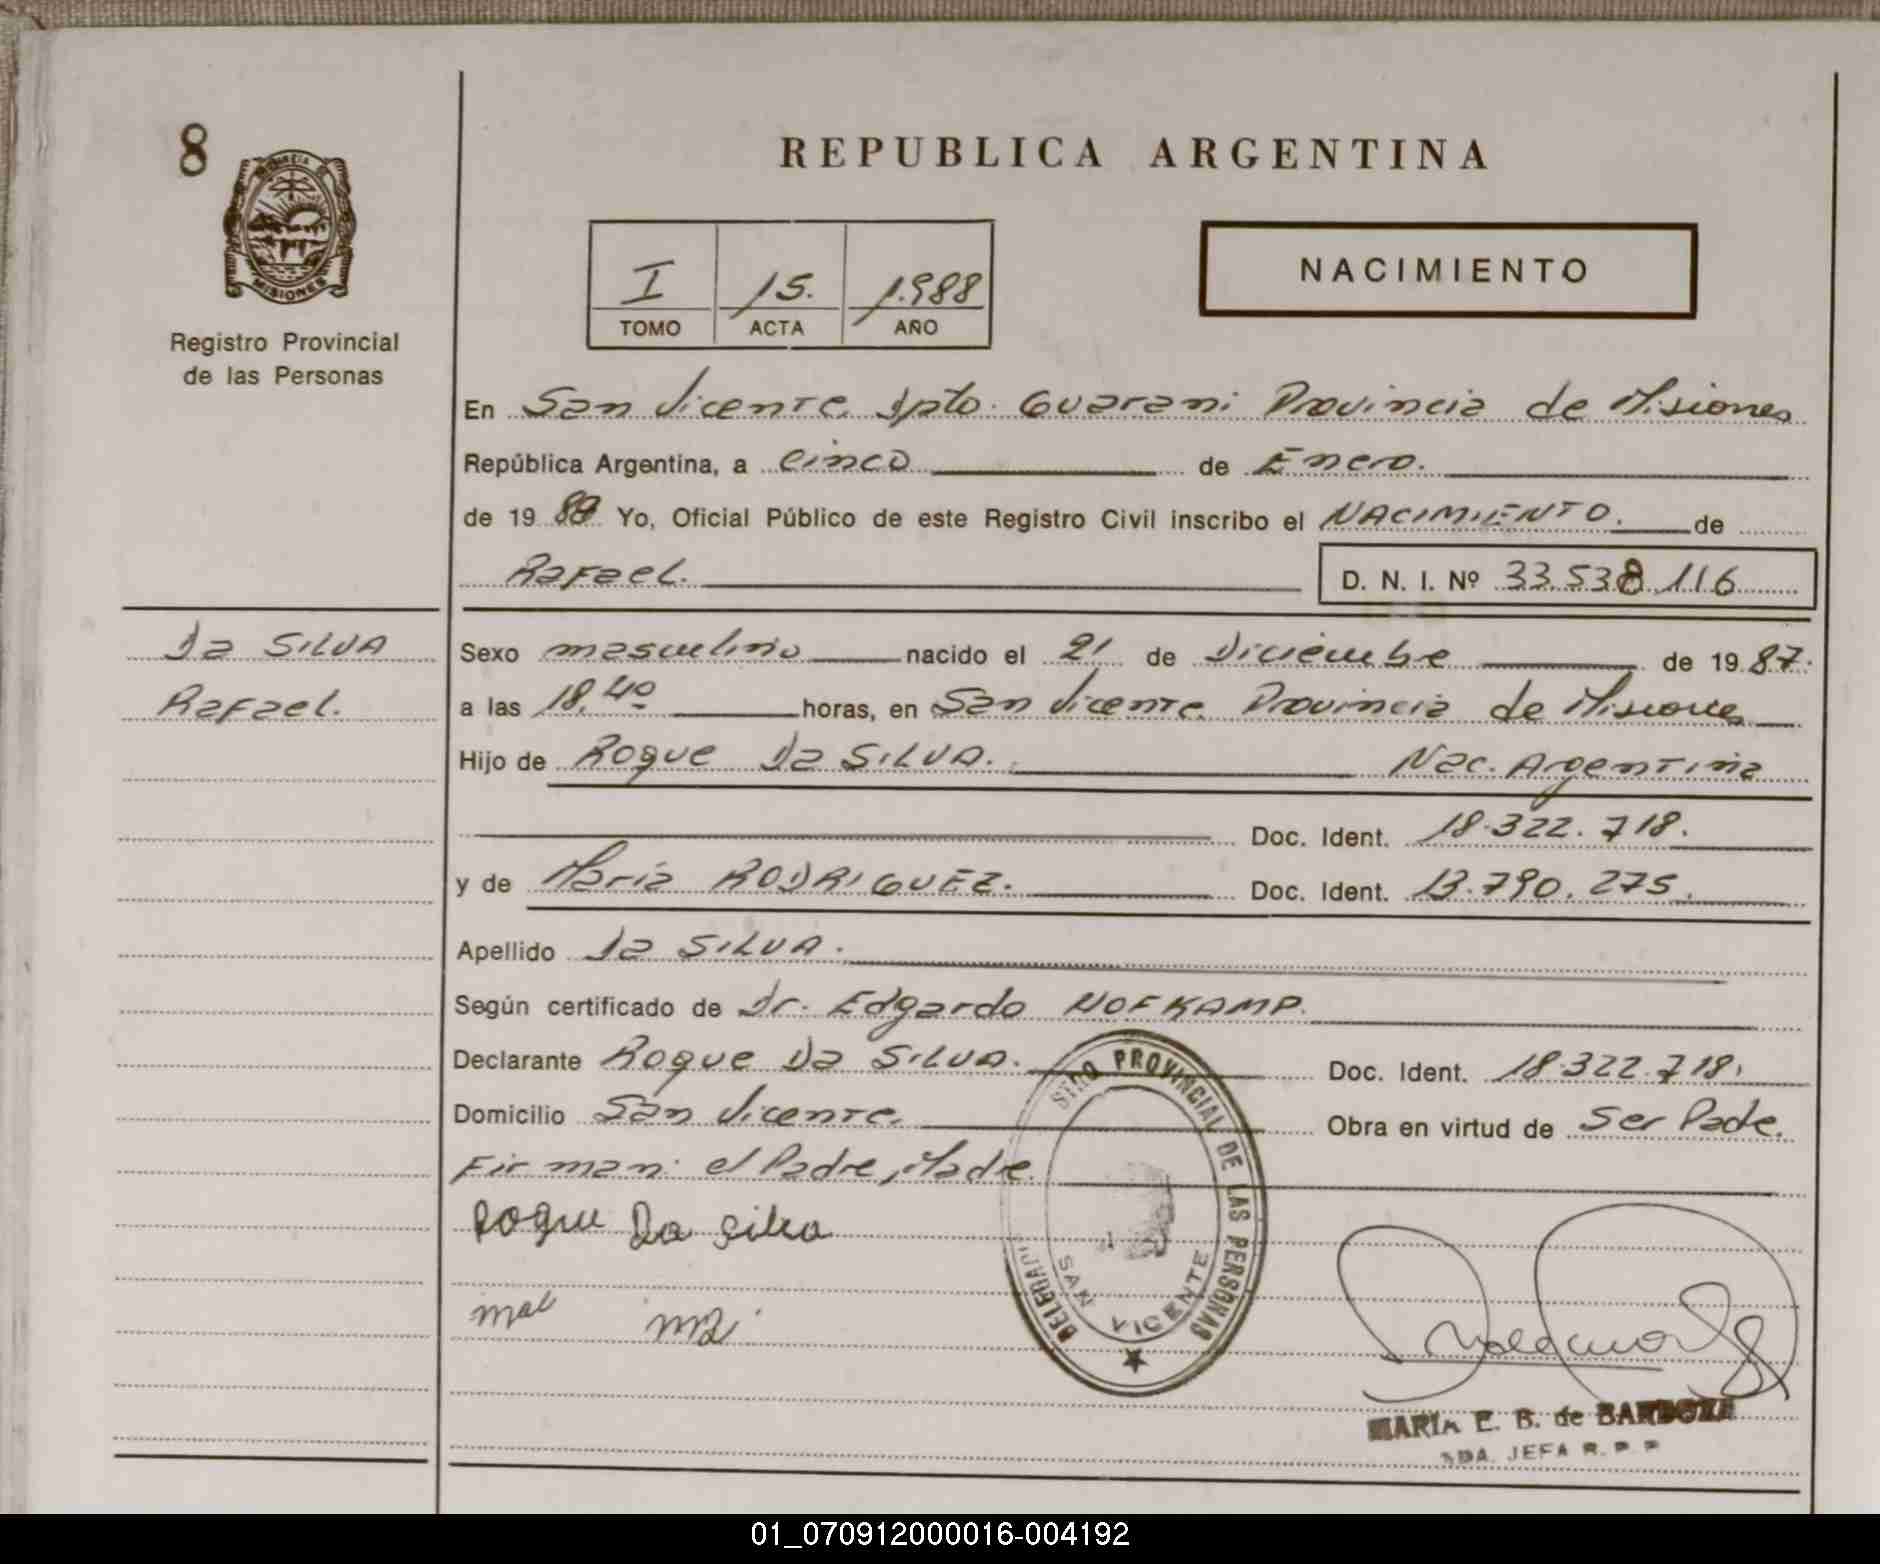 8
PROVINCIA
MISIONES
Registro Provincial
de las Personas
REPUBLICA ARGENTINA
I 15. 1.988
TOMO ACTA AÑO
NACIMIENTO
En San Vicente Dpto. Guarani Provincia de Misiones
República Argentina, a cinco de Enero.
de 19 88 Yo, Oficial Público de este Registro Civil inscribo el NACIMIENTO. de
Rafael. D. N. I. Nº 33.538.116
Da SILVA
Rafael.
Sexo masculino nacido el 21 de Diciembre de 19 87.
a las 18,40 horas, en San Vicente Provincia de Misiones
Hijo de Roque Da SILVA. Nac. Argentina
Doc. Ident. 18.322.718.
y de Maria RODRIGUEZ. Doc. Ident. 13.790.275.
Apellido Da SILVA.
Según certificado de Dr. Edgardo HOFKAMP.
Declarante Roque Da SILVA. Doc. Ident. 18.322.718.
Domicilio San Vicente. Obra en virtud de Ser Padre.
Firman: el Padre, Madre.
Roque Da Silva
STRO PROVINCIAL DE LAS PERSONAS
SAN VICENTE
MARIA E. B. de BARBOZA
JEFA R. P. P
01_070912000016-004192